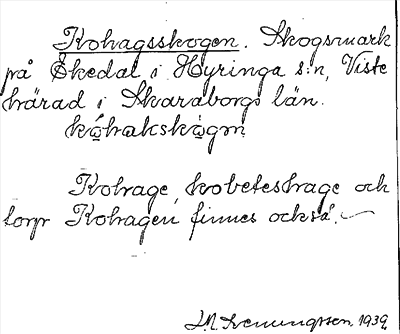 Kohagsskogen. Skogsmark
på Skedal i Hyringa s:n, Viste
härad i Skaraborgs län.
Kohage, kobeteshage och
torp Kohagen finnes också.
1939.